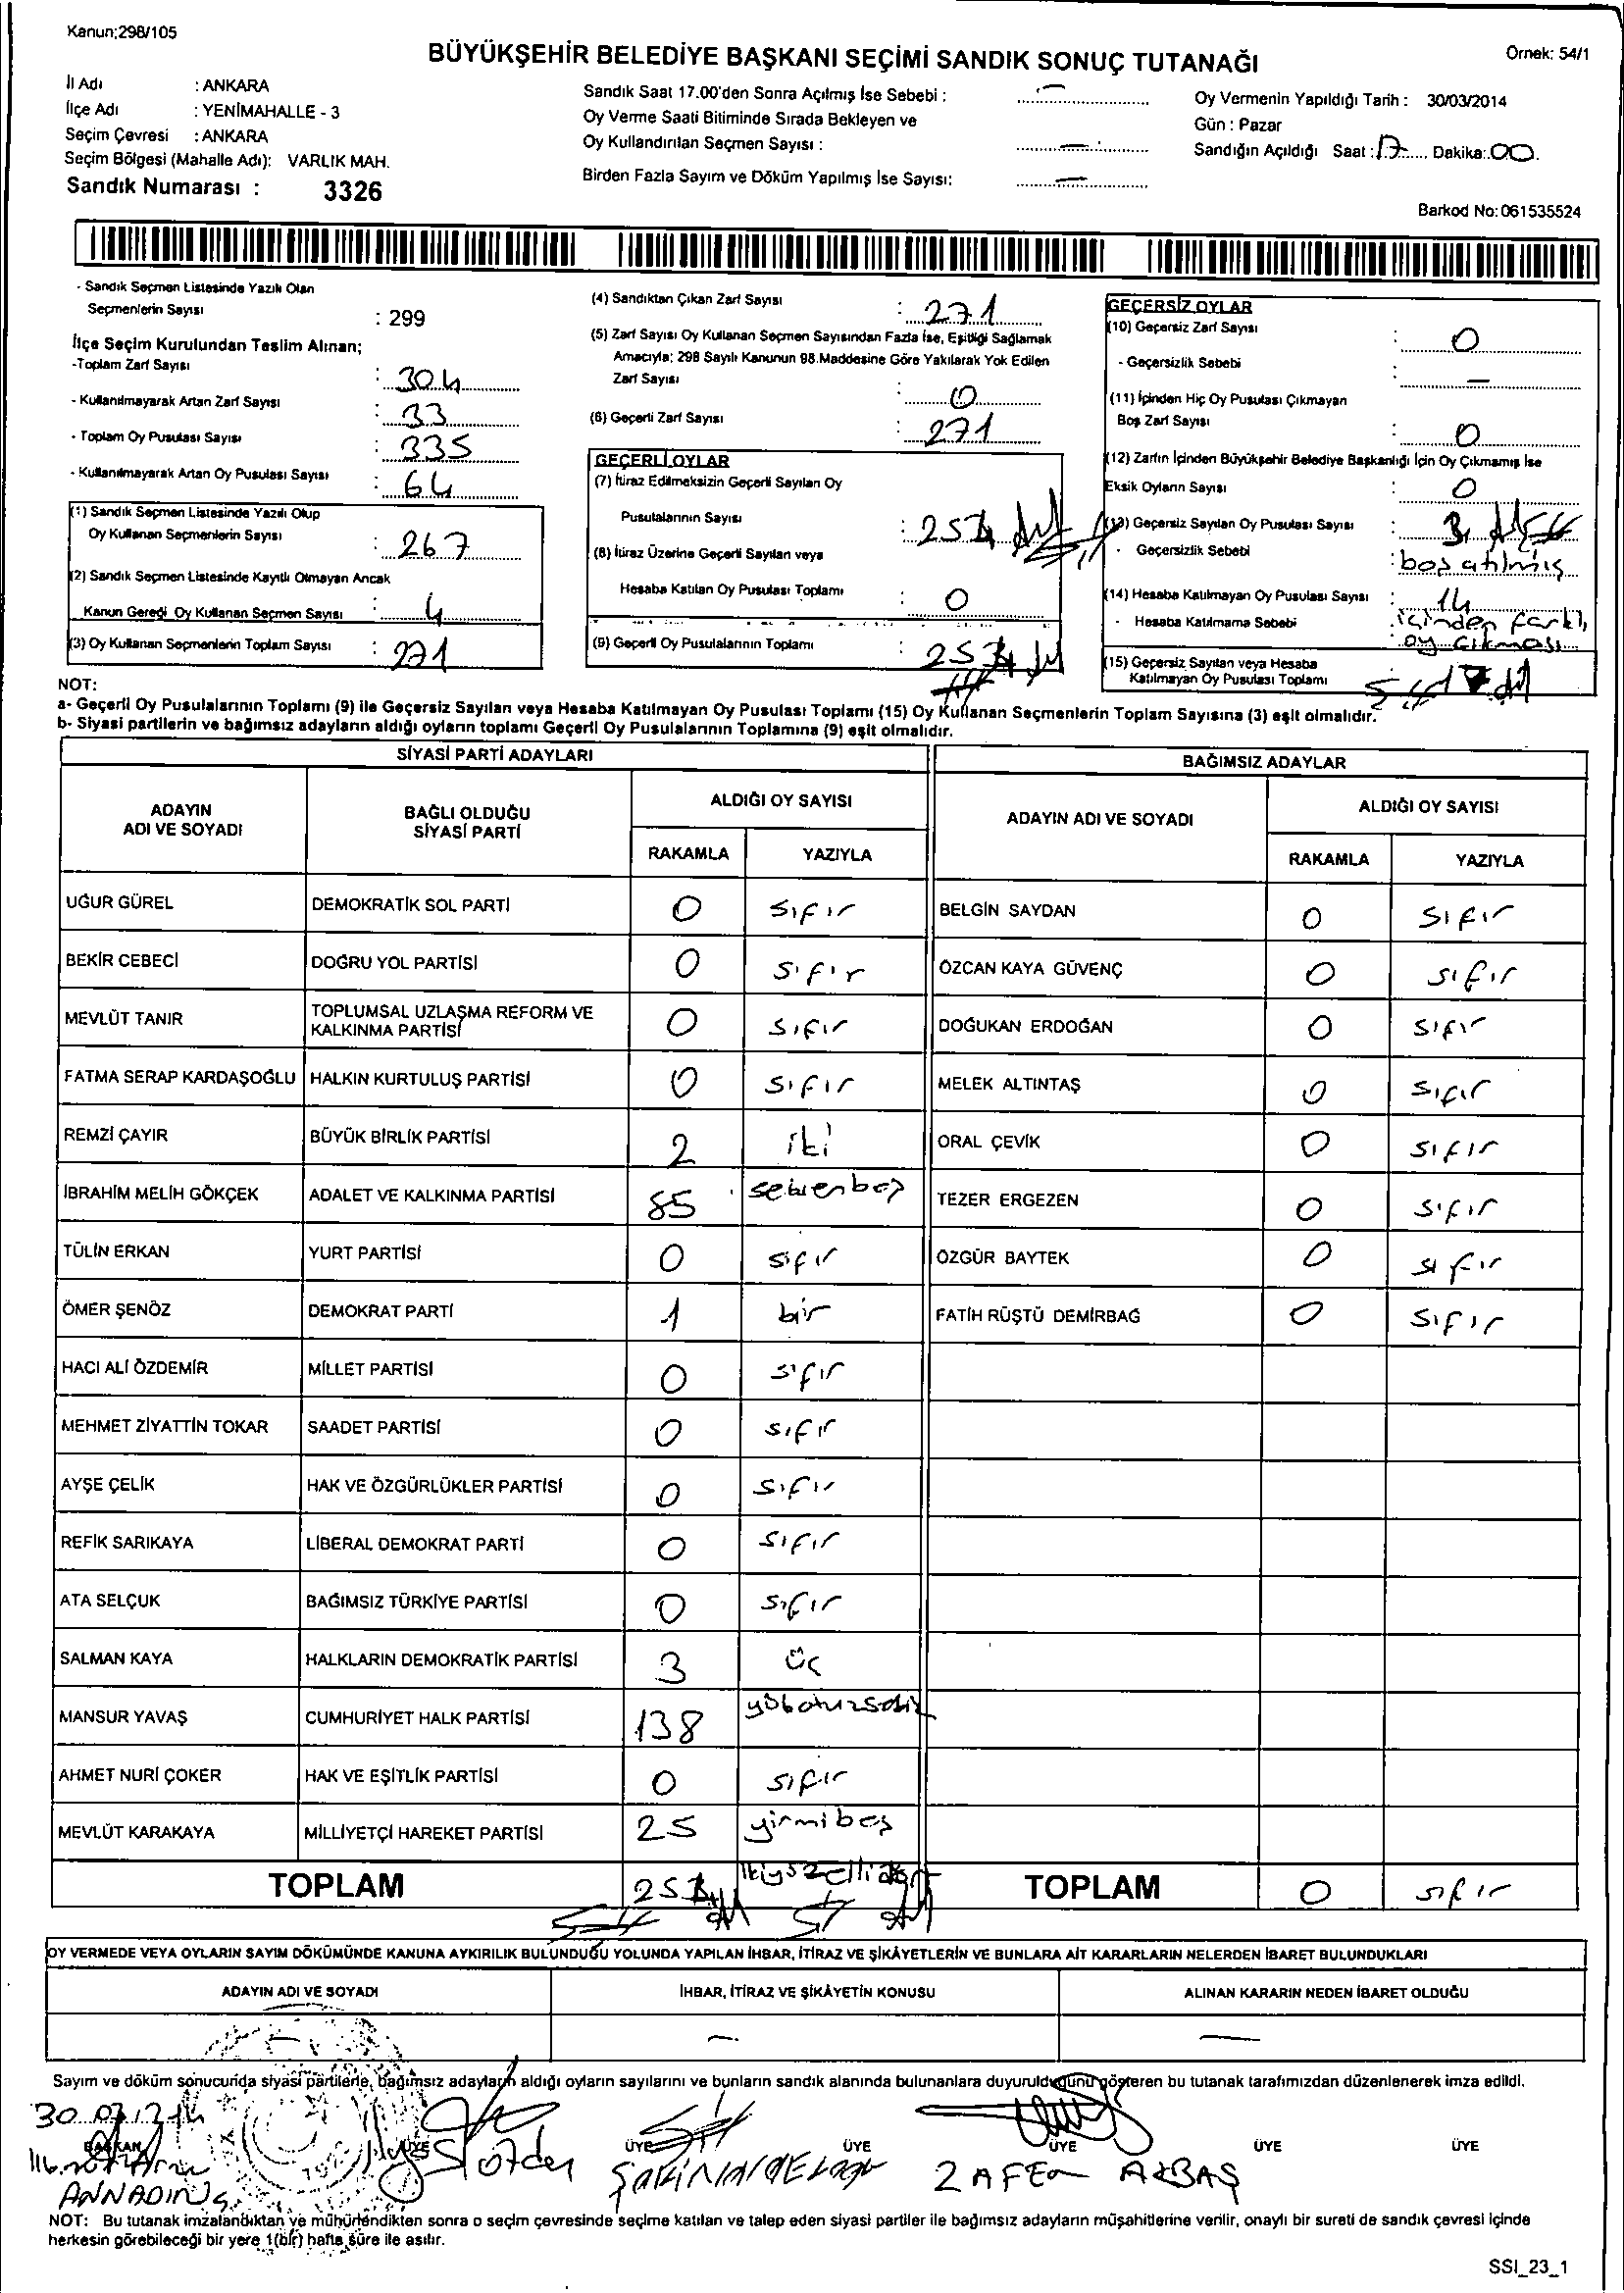 Kanun;298/105
BÜYÜKŞEHİR BELEDİYE BAŞKANI SEÇİMİ SANDIK SONUÇ TUTANAĞI
Örnek: 54/1
İl Adı : ANKARA
İlçe Adı : YENİMAHALLE - 3
Seçim Çevresi : ANKARA
Seçim Bölgesi (Mahalle Adı): VARLIK MAH.
Sandık Numarası : 3326
Sandık Saat 17.00'den Sonra Açılmış İse Sebebi : —
Oy Verme Saati Bitiminde Sırada Bekleyen ve
Oy Kullandırılan Seçmen Sayısı : —
Birden Fazla Sayım ve Döküm Yapılmış İse Sayısı: —
Oy Vermenin Yapıldığı Tarih : 30/03/2014
Gün : Pazar
Sandığın Açıldığı Saat : 17 Dakika: 00.
Barkod No: 061535524
- Sandık Seçmen Listesinde Yazılı Olan
Seçmenlerin Sayısı : 299
İlçe Seçim Kurulundan Teslim Alınan;
-Toplam Zarf Sayısı : 304
- Kullanılmayarak Artan Zarf Sayısı : 33
- Toplam Oy Pusulası Sayısı : 335
- Kullanılmayarak Artan Oy Pusulası Sayısı : 64
(1) Sandık Seçmen Listesinde Yazılı Olup
Oy Kullanan Seçmenlerin Sayısı : 267
(2) Sandık Seçmen Listesinde Kayıtlı Olmayan Ancak
Kanun Gereği Oy Kullanan Seçmen Sayısı : 4
(3) Oy Kullanan Seçmenlerin Toplam Sayısı : 271
(4) Sandıktan Çıkan Zarf Sayısı : 271
(5) Zarf Sayısı Oy Kullanan Seçmen Sayısından Fazla İse, Eşitliği Sağlamak
Amacıyla; 298 Sayılı Kanunun 98.Maddesine Göre Yakılarak Yok Edilen
Zarf Sayısı : 0
(6) Geçerli Zarf Sayısı : 271
GEÇERLİ OYLAR
(7) İtiraz Edilmeksizin Geçerli Sayılan Oy
Pusulalarının Sayısı : 254
(8) İtiraz Üzerine Geçerli Sayılan veya
Hesaba Katılan Oy Pusulası Toplamı : 0
(9) Geçerli Oy Pusulalarının Toplamı : 254
GEÇERSİZ OYLAR
(10) Geçersiz Zarf Sayısı : 0
- Geçersizlik Sebebi : —
(11) İçinden Hiç Oy Pusulası Çıkmayan
Boş Zarf Sayısı : 0
(12) Zarfın İçinden Büyükşehir Belediye Başkanlığı İçin Oy Çıkmamış İse
Eksik Oyların Sayısı : 0
(13) Geçersiz Sayılan Oy Pusulası Sayısı : 3
- Geçersizlik Sebebi : boş atılmış
(14) Hesaba Katılmayan Oy Pusulası Sayısı : 14
- Hesaba Katılmama Sebebi : içinden farklı
oy çıkması
(15) Geçersiz Sayılan veya Hesaba
Katılmayan Oy Pusulası Toplamı : 17
NOT:
a- Geçerli Oy Pusulalarının Toplamı (9) ile Geçersiz Sayılan veya Hesaba Katılmayan Oy Pusulası Toplamı (15) Oy Kullanan Seçmenlerin Toplam Sayısına (3) eşit olmalıdır.
b- Siyasi partilerin ve bağımsız adayların aldığı oyların toplamı Geçerli Oy Pusulalarının Toplamına (9) eşit olmalıdır.
SİYASİ PARTİ ADAYLARI BAĞIMSIZ ADAYLAR
ADAYIN ADI VE SOYADI BAĞLI OLDUĞU SİYASİ PARTİ ALDIĞI OY SAYISI ADAYIN ADI VE SOYADI ALDIĞI OY SAYISI
RAKAMLA YAZIYLA RAKAMLA YAZIYLA
UĞUR GÜREL DEMOKRATİK SOL PARTİ 0 sıfır BELGİN SAYDAN 0 sıfır
BEKİR CEBECİ DOĞRU YOL PARTİSİ 0 sıfır ÖZCAN KAYA GÜVENÇ 0 sıfır
MEVLÜT TANIR TOPLUMSAL UZLAŞMA REFORM VE KALKINMA PARTİSİ 0 sıfır DOĞUKAN ERDOĞAN 0 sıfır
FATMA SERAP KARDAŞOĞLU HALKIN KURTULUŞ PARTİSİ 0 sıfır MELEK ALTINTAŞ 0 sıfır
REMZİ ÇAYIR BÜYÜK BİRLİK PARTİSİ 2 iki ORAL ÇEVİK 0 sıfır
İBRAHİM MELİH GÖKÇEK ADALET VE KALKINMA PARTİSİ 85 seksenbeş TEZER ERGEZEN 0 sıfır
TÜLİN ERKAN YURT PARTİSİ 0 sıfır ÖZGÜR BAYTEK 0 sıfır
ÖMER ŞENÖZ DEMOKRAT PARTİ 1 bir FATİH RÜŞTÜ DEMİRBAĞ 0 sıfır
HACI ALİ ÖZDEMİR MİLLET PARTİSİ 0 sıfır
MEHMET ZİYATTİN TOKAR SAADET PARTİSİ 0 sıfır
AYŞE ÇELİK HAK VE ÖZGÜRLÜKLER PARTİSİ 0 sıfır
REFİK SARIKAYA LİBERAL DEMOKRAT PARTİ 0 sıfır
ATA SELÇUK BAĞIMSIZ TÜRKİYE PARTİSİ 0 sıfır
SALMAN KAYA HALKLARIN DEMOKRATİK PARTİSİ 3 üç
MANSUR YAVAŞ CUMHURİYET HALK PARTİSİ 138 yüzotuzsekiz
AHMET NURİ ÇOKER HAK VE EŞİTLİK PARTİSİ 0 sıfır
MEVLÜT KARAKAYA MİLLİYETÇİ HAREKET PARTİSİ 25 yirmibeş
TOPLAM 254 ikiyüzellidört TOPLAM 0 sıfır
OY VERMEDE VEYA OYLARIN SAYIM DÖKÜMÜNDE KANUNA AYKIRILIK BULUNDUĞU YOLUNDA YAPILAN İHBAR, İTİRAZ VE ŞİKÂYETLERİN VE BUNLARA AİT KARARLARIN NELERDEN İBARET BULUNDUKLARI
ADAYIN ADI VE SOYADI İHBAR, İTİRAZ VE ŞİKÂYETİN KONUSU ALINAN KARARIN NEDEN İBARET OLDUĞU
— — —
Sayım ve döküm sonucunda siyasi partilerle, bağımsız adayların aldığı oyların sayılarını ve bunların sandık alanında bulunanlara duyurulduğunu gösteren bu tutanak tarafımızdan düzenlenerek imza edildi.
BAŞKAN ÜYE ÜYE ÜYE ÜYE ÜYE ÜYE
ZAFER AKBAŞ
NOT: Bu tutanak imzalandıktan ve mühürlendikten sonra o seçim çevresinde seçime katılan ve talep eden siyasi partiler ile bağımsız adayların müşahitlerine verilir, onaylı bir sureti de sandık çevresi içinde
herkesin görebileceği bir yere 1(bir) hafta süre ile asılır.
SSI_23_1